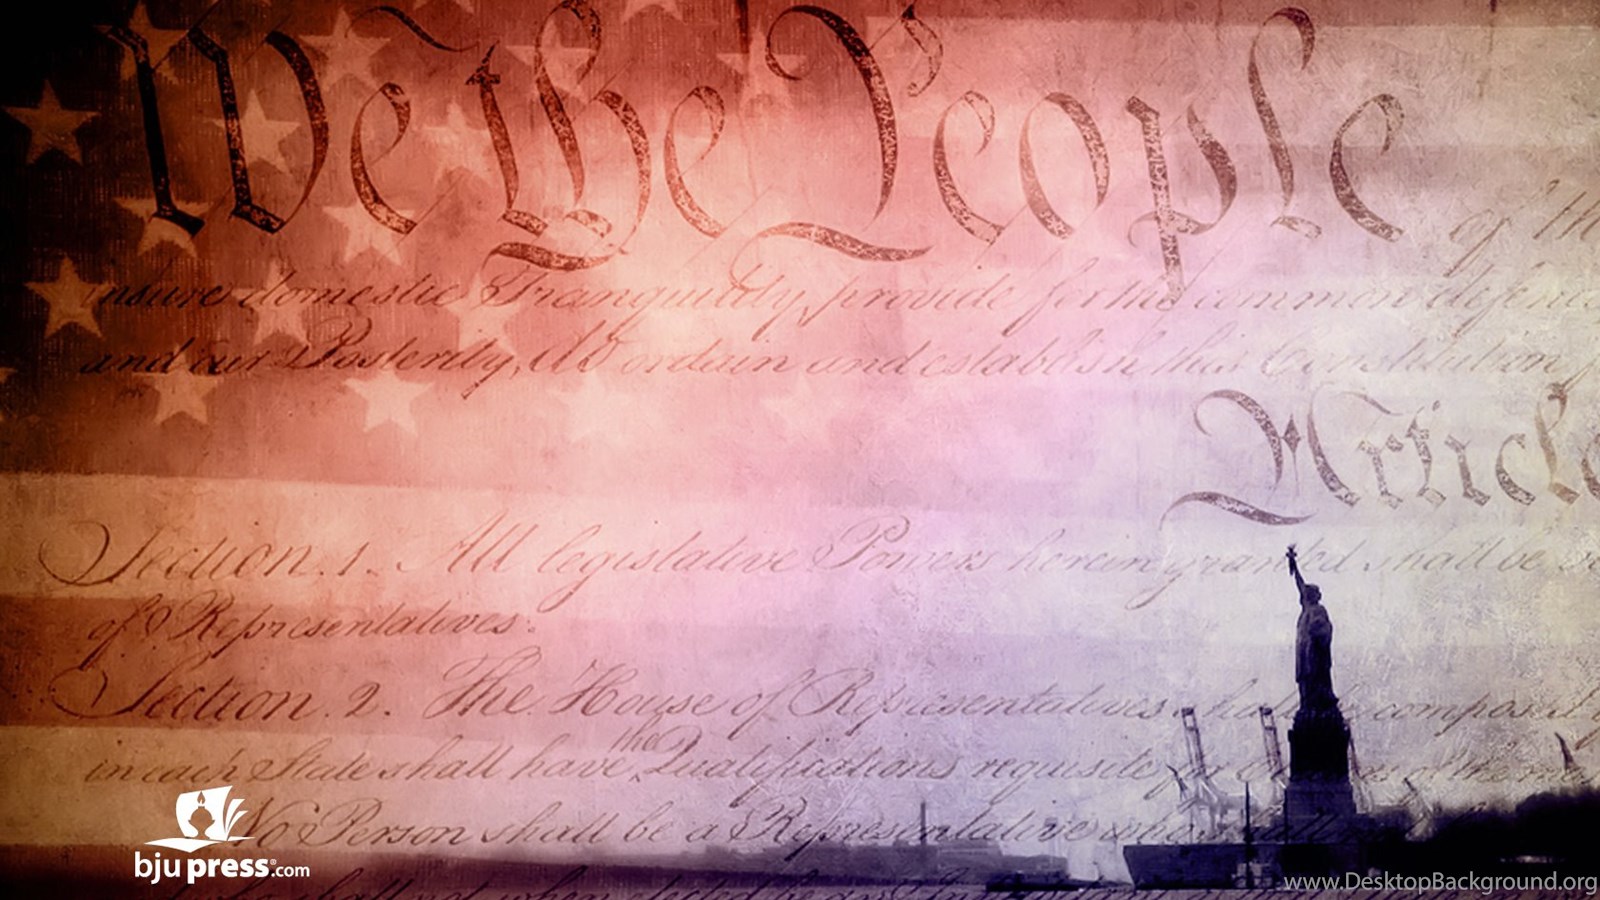 We the People of th
nsure domestic Tranquility, provide for the common defence
and our Posterity, do ordain and establish this Constitution f
Article
Section. 1. All legislative Powers herein granted shall be
of Representatives.
Section. 2. The House of Representatives shall be composed
in each State shall have the Qualifications requisite for of the
No Person shall be a Representative who shall not
shall not, when elected, be an Inhabitant of that State in
bju press.com
www.DesktopBackground.org